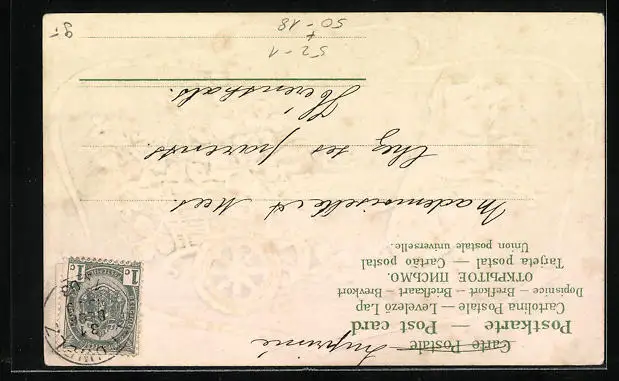 Carte Postale Imprimé
Postkarte — Post card
Cartolina Postale — Levelező Lap
Dopisnice — Brefkort — Briefkaart — Brevkort
ОТКРЫТОЕ ПИСЬМО.
Tarjeta postal — Cartão postal
Union postale universelle.
Mademoiselle
Chez ses parents.
Herenthals.
52-1
50-18
g.-
1c 1c